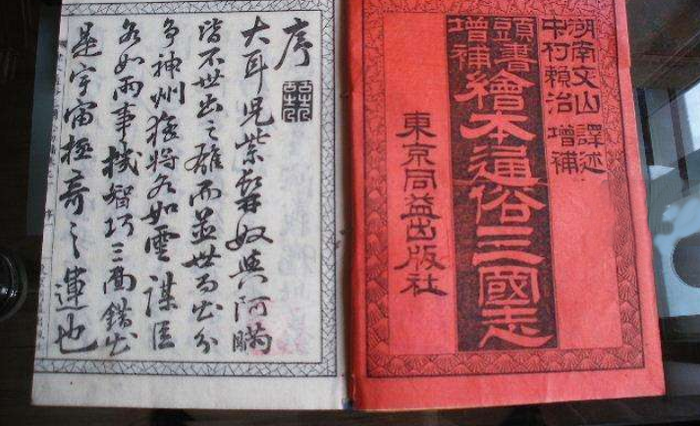 湖南文山 譯述
中村賴治 增補
頭書
增補
繪本通俗三國志
東京同益出版社
序
大耳兒紫髯奴與阿瞞
皆不世出之雄而並世而出分
爭神州猛將各如雲謀臣
各如雨事機智巧三面錯出
是宇宙極奇之運也